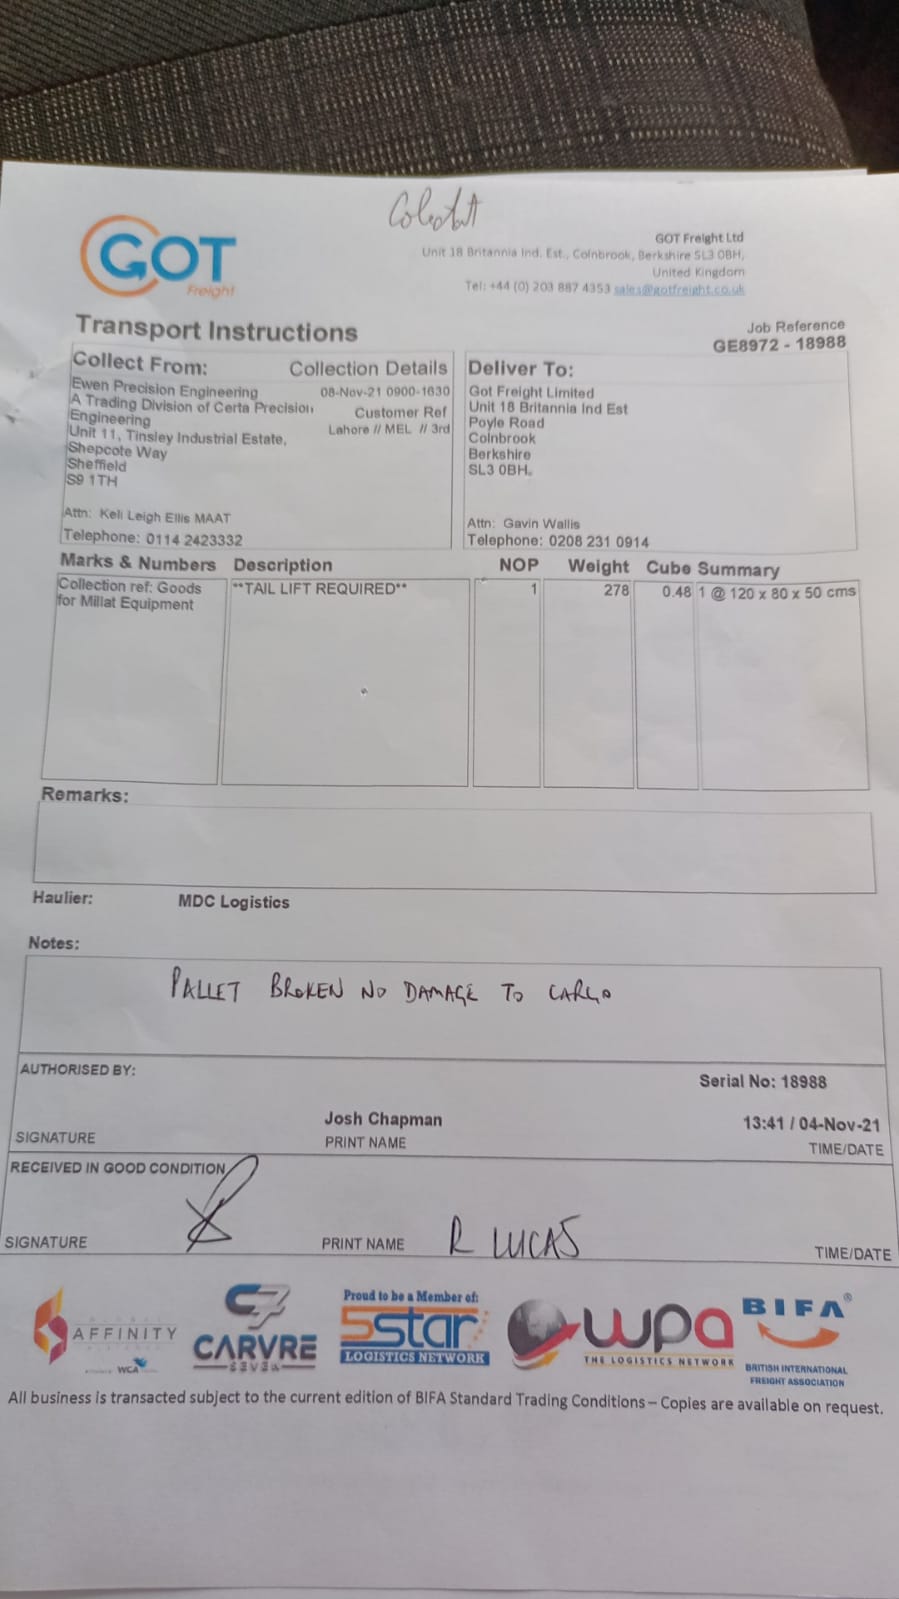 GOT
Freight
GOT Freight Ltd
Unit 18 Britannia Ind. Est., Colnbrook, Berkshire SL3 0BH,
United Kingdom
Tel: +44 (0) 203 887 4353 sales@gotfreight.co.uk
Transport Instructions
Job Reference
GE8972 - 18988
Collect From:
Collection Details
Ewen Precision Engineering
A Trading Division of Certa Precision
Engineering
Unit 11, Tinsley Industrial Estate,
Shepcote Way
Sheffield
S9 1TH
08-Nov-21 0900-1630
Customer Ref
Lahore // MEL // 3rd
Attn: Keli Leigh Ellis MAAT
Telephone: 0114 2423332
Deliver To:
Got Freight Limited
Unit 18 Britannia Ind Est
Poyle Road
Colnbrook
Berkshire
SL3 0BH.
Attn: Gavin Wallis
Telephone: 0208 231 0914
Marks & Numbers Description NOP Weight Cube Summary
Collection ref: Goods
for Millat Equipment
**TAIL LIFT REQUIRED**
1
278
0.48
1 @ 120 x 80 x 50 cms
Remarks:
Haulier: MDC Logistics
Notes:
PALLET BROKEN NO DAMAGE TO CARGO
AUTHORISED BY:
Serial No: 18988
Josh Chapman
13:41 / 04-Nov-21
SIGNATURE PRINT NAME TIME/DATE
RECEIVED IN GOOD CONDITION
SIGNATURE PRINT NAME R LUCAS TIME/DATE
AFFINITY
WCA
CARVRE
SEVEN
Proud to be a Member of:
5star
LOGISTICS NETWORK
wpa
THE LOGISTICS NETWORK
BIFA®
BRITISH INTERNATIONAL
FREIGHT ASSOCIATION
All business is transacted subject to the current edition of BIFA Standard Trading Conditions – Copies are available on request.